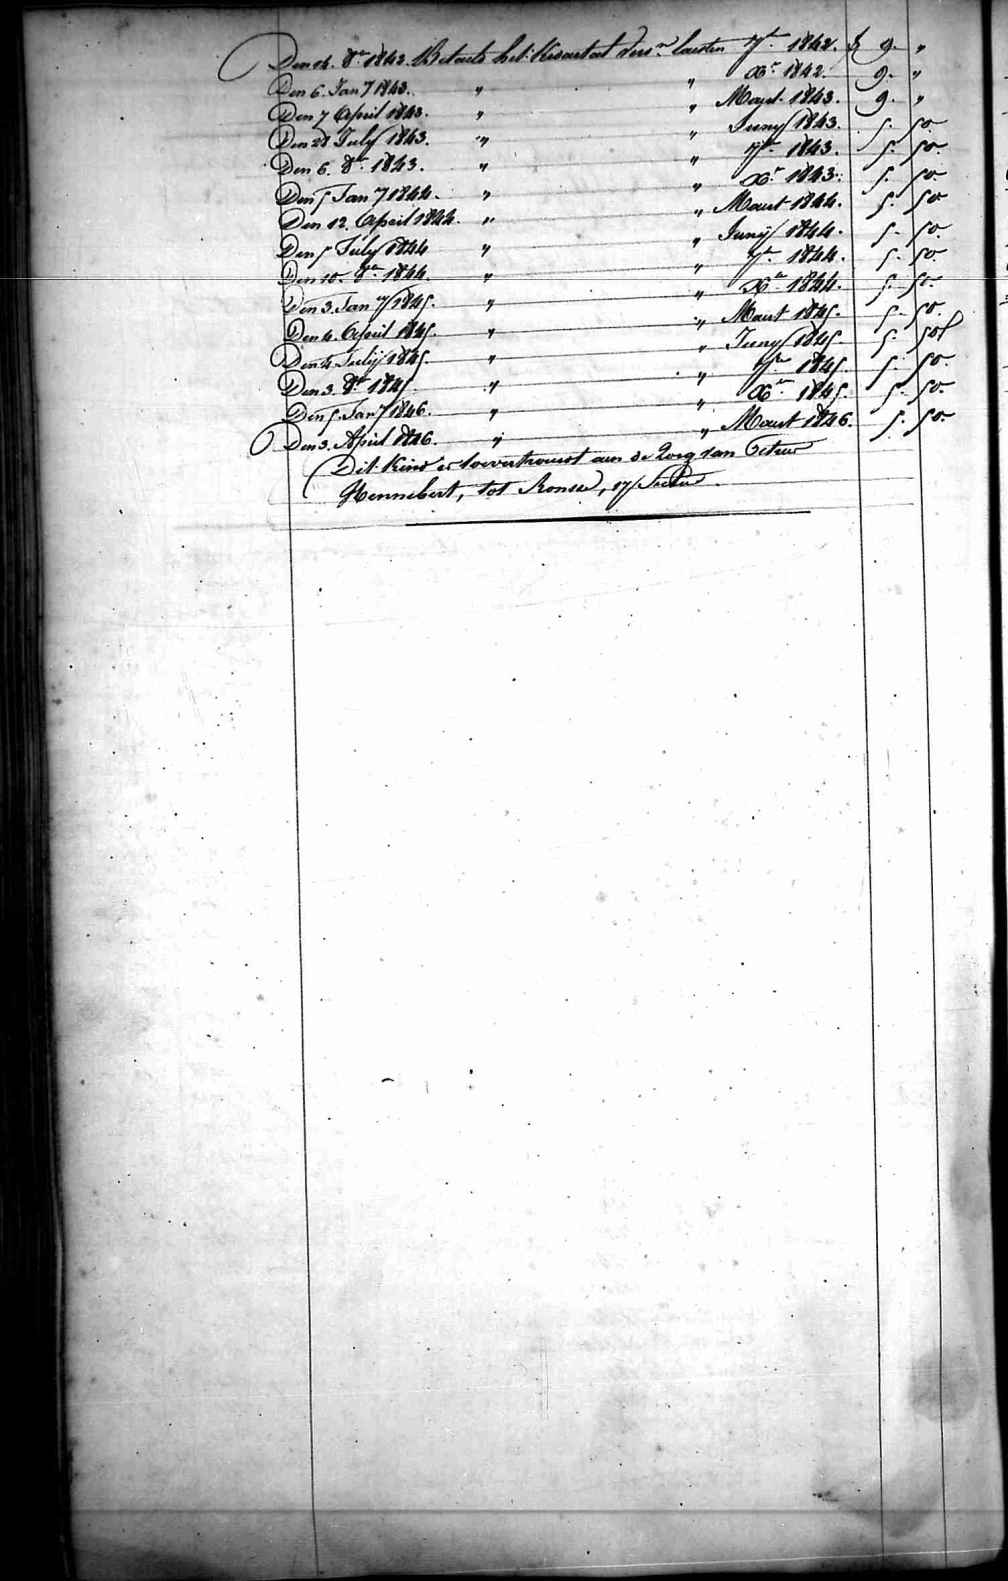 Den 14. 8re 1842. Betaelt het kwartael vers.n laesten 7bre 1842. f 9. "
Den 6. Jan.y 1843. " " Xbr 1842. 9. "
Den 7 April 1843. " " Maert 1843. 9. "
Den 28 July 1843. " " Juny 1843. 5. 50.
Den 6. 8re 1843. " " 7bre 1843. 5. 50.
Den 5 Jan.y 1844. " " Xbr 1843. 5. 50
Den 12. April 1844. " " Maert 1844. 5. 50
Den 5 July 1844 " " Junij 1844. 5. 50.
Den 10. 8re 1844. " " 7bre 1844. 5. 50.
Den 3. Jan.y 1845. " " Xbre 1844. 5. 50.
Den 4. April 1845. " " Maert 1845. 5. 50.
Den 4 Julij 1845. " " Juny 1845. 5. 50
Den 3. 8re 1845. " " 7bre 1845. 5. 50.
Den 5. Jan.y 1846. " " Xbre 1845. 5. 50.
Den 3. April 1846. " " Maert 1846. 5. 50.
Dit kind is toevertrouwt aen de zorg van
Hennebert, tot Ronse,